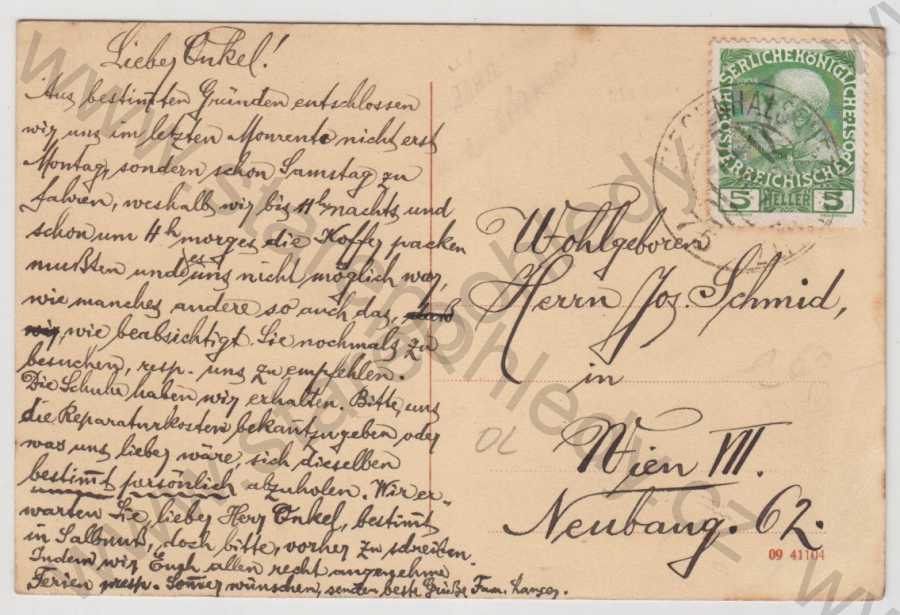 Lieber Onkel!
Aus bestimmten Gründen entschlossen
wir uns im letzten Momente nicht erst
Montag, sondern schon Samstag zu
fahren, weshalb wir bis 11h nachts und
schon um 4h morges die Koffer packen
mußten und es uns nicht möglich war,
wie manches andere so auch das,
wie beabsichtigt Sie nochmals zu
besuchen, resp. uns zu empfehlen.
Die Schuhe haben wir erhalten. Bitte, uns
die Reparaturkosten bekantzugeben oder
was uns lieber wäre, sich dieselben
bestimmt persönlich abzuholen. Wir er-
warten Sie, lieber Herr Onkel, bestimmt
in Salbnuß, doch bitte, vorher zu schreiben.
Indem wir Euch allen recht angenehme
Ferien resp. Sommer wünschen, senden beste Grüße Fam.
KAISERLICHE KÖNIGLICHE
ÖSTERREICHISCHE POST
5 HELLER 5
Wohlgeboren
Herrn Jos. Schmid,
in
Wien VII.
Neubaug. 62.
OL
09 41104
www.starepohledy.cz